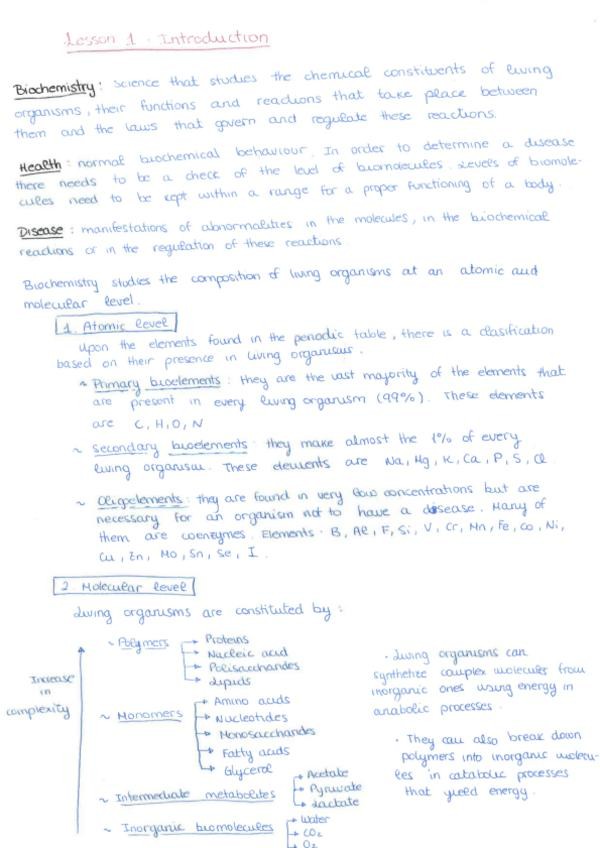 Lesson 1 . Introduction
Biochemistry : science that studies the chemical constituents of living
organisms, their functions and reactions that take place between
them and the laws that govern and regulate these reactions.
Health : normal biochemical behaviour. In order to determine a disease
there needs to be a check of the level of biomolecules. Levels of biomole-
cules need to be kept within a range for a proper functioning of a body.
Disease : manifestations of abnormalities in the molecules, in the biochemical
reactions or in the regulation of these reactions.
Biochemistry studies the composition of living organisms at an atomic and
molecular level.
1. Atomic level
Upon the elements found in the periodic table, there is a clasification
based on their presence in living organisms.
~ Primary bioelements : they are the vast majority of the elements that
are present in every living organism (99%). These elements
are C, H, O, N
~ Secondary bioelements : they make almost the 1% of every
living organism. These elements are Na, Mg, K, Ca, P, S, Cl
~ Oligoelements : they are found in very low concentrations but are
necessary for an organism not to have a disease. Many of
them are coenzymes. Elements : B, Al, F, Si, V, Cr, Mn, Fe, Co, Ni,
Cu, Zn, Mo, Sn, Se, I.
2. Molecular level
Living organisms are constituted by :
Increase
in
complexity
~ Polymers
Proteins
Nucleic acid
Polisaccharides
Lipids
~ Monomers
Amino acids
Nucleotides
Monosaccharides
Fatty acids
Glycerol
~ Intermediate metabolites
Acetate
Pyruvate
Lactate
~ Inorganic biomolecules
Water
CO2
O2
· Living organisms can
synthetize complex molecules from
inorganic ones using energy in
anabolic processes.
· They can also break down
polymers into inorganic molecu-
les in catabolic processes
that yield energy.